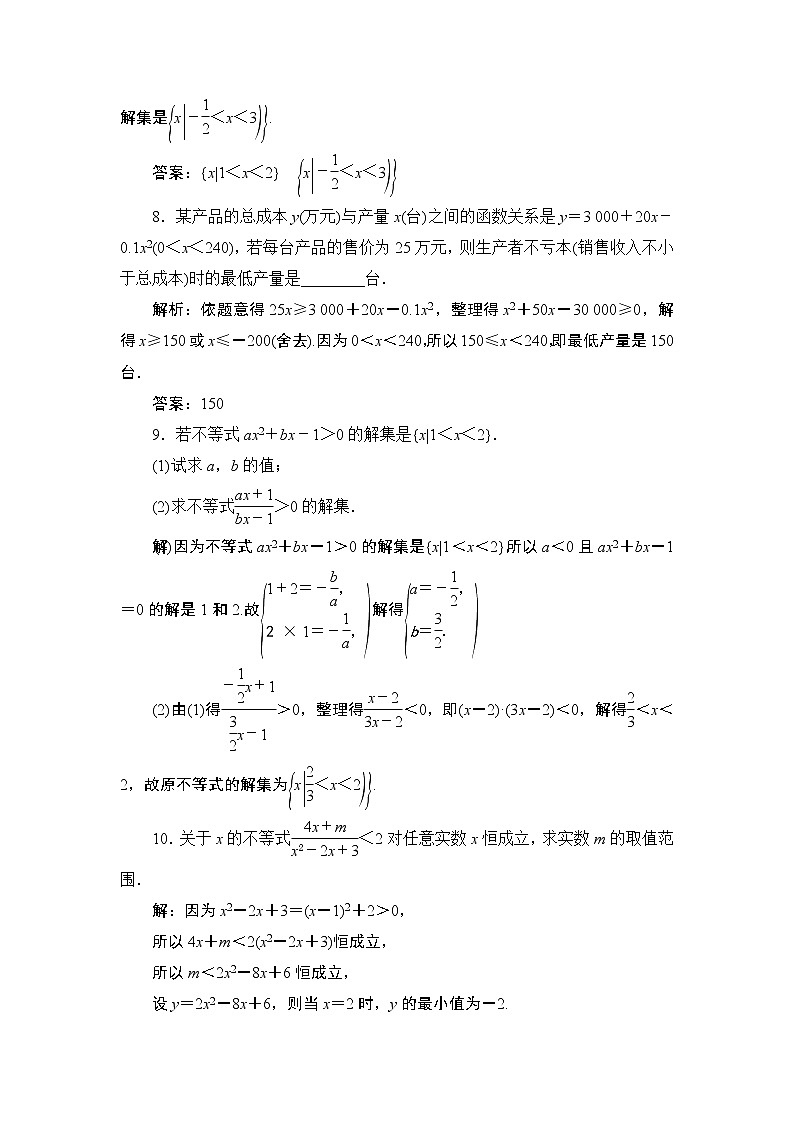 解集是{x|-1/2<x<3}.
答案：{x|1<x<2}　{x|-1/2<x<3}
8．某产品的总成本 y(万元)与产量 x(台)之间的函数关系是 y＝3 000＋20x－
0.1x²(0＜x＜240)，若每台产品的售价为 25 万元，则生产者不亏本(销售收入不小
于总成本)时的最低产量是________台．
解析：依题意得 25x≥3 000＋20x－0.1x²，整理得 x²＋50x－30 000≥0，解
得 x≥150 或 x≤－200(舍去).因为 0＜x＜240,所以 150≤x＜240,即最低产量是 150
台．
答案：150
9．若不等式 ax²＋bx－1＞0 的解集是{x|1＜x＜2}．
(1)试求 a，b 的值；
(2)求不等式(ax＋1)/(bx－1)＞0 的解集．
解)因为不等式 ax²＋bx－1＞0 的解集是{x|1＜x＜2}所以 a＜0 且 ax²＋bx－1
＝0 的解是 1 和 2.故{1＋2＝－b/a， 2 × 1＝－1/a，)解得{a＝－1/2， b＝3/2.)
(2)由(1)得(－1/2x＋1)/(3/2x－1)＞0，整理得(x－2)/(3x－2)＜0，即(x－2)·(3x－2)＜0，解得2/3＜x＜
2，故原不等式的解集为{x|2/3＜x＜2}.
10．关于 x 的不等式(4x＋m)/(x²－2x＋3)＜2 对任意实数 x 恒成立，求实数 m 的取值范
围．
解：因为 x²－2x＋3＝(x－1)²＋2＞0，
所以 4x＋m＜2(x²－2x＋3)恒成立，
所以 m＜2x²－8x＋6 恒成立，
设 y＝2x²－8x＋6，则当 x＝2 时，y 的最小值为－2.